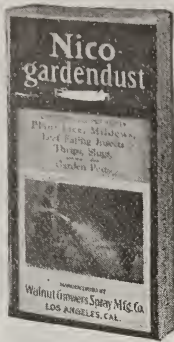 Nico
gardendust
Plant Lice, Mildews,
Leaf Eating Insects
Thrips, Slugs,
Garden Pests
MANUFACTURED BY
Walnut Growers Spray Mfg. Co.
LOS ANGELES, CAL.